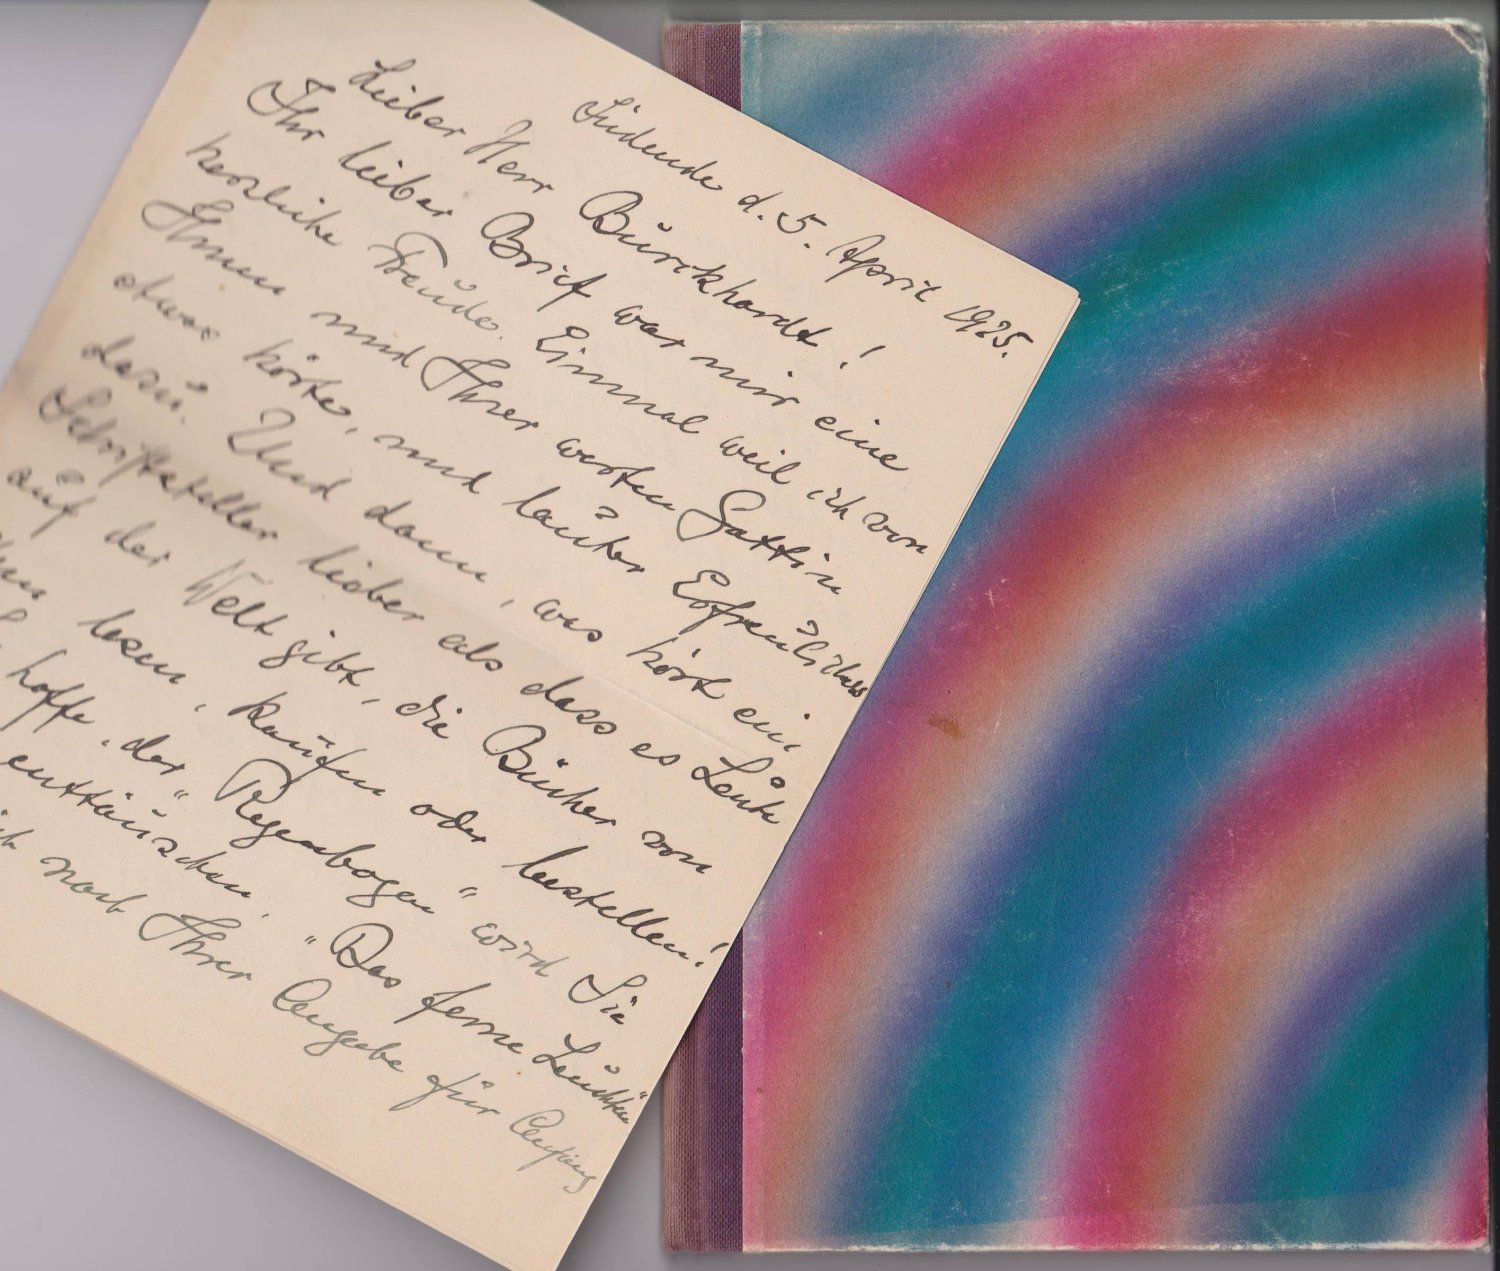 Südende d. 5. April 1925.
Lieber Herr Burckhardt!
Ihr lieber Brief war mir eine
herzliche Freude. Einmal weil ich von
Ihnen und Ihrer werten Gattin
etwas hörte, und lauter Erfreuliches
dazu. Und dann, was hört ein
Schriftsteller lieber als dass es Leute
auf der Welt gibt, die Bücher von
lesen, kaufen oder bestellen!
hoffe, der „Regenbogen“ wird Sie
enttäuschen. „Das ferne Leuchten“
nach Ihrer Angabe für